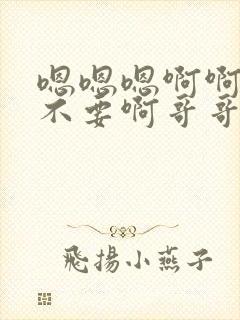 嗯嗯嗯啊啊
不要啊哥哥
飛揚小燕子